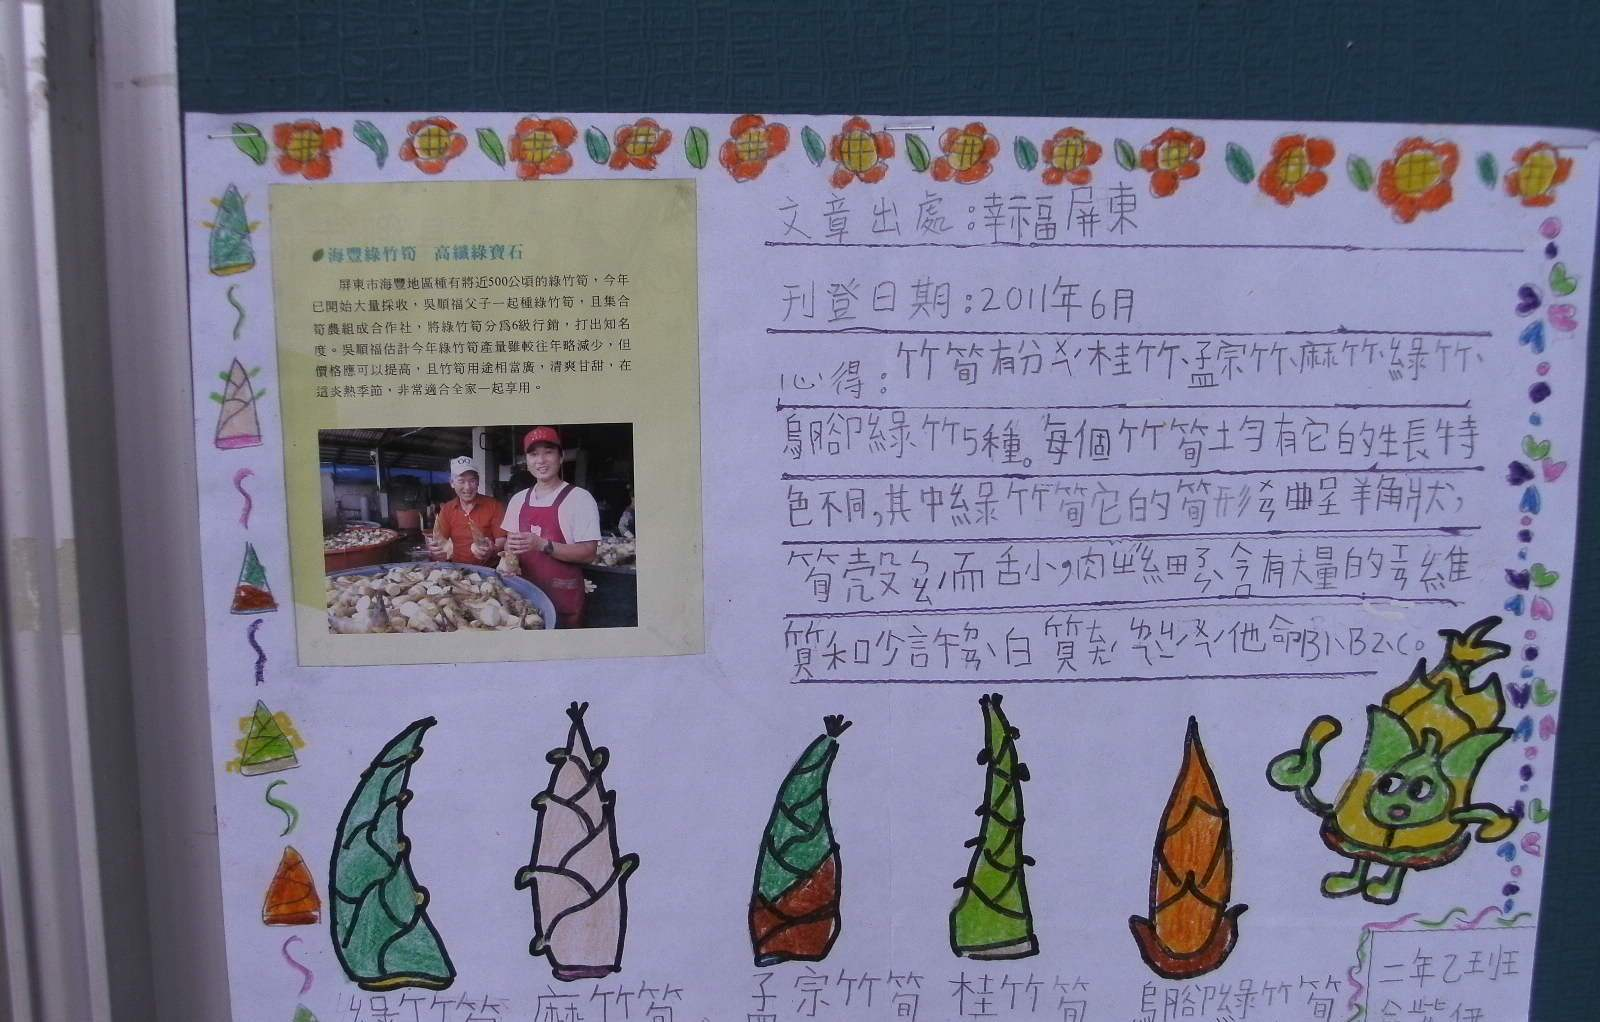 海豐綠竹筍　高纖綠寶石
屏東市海豐地區種有將近500公頃的綠竹筍，今年
已開始大量採收，吳順福父子一起種綠竹筍，且集合
筍農組成合作社，將綠竹筍分爲6級行銷，打出知名
度。吳順福估計今年綠竹筍產量雖較往年略減少，但
價格應可以提高，且竹筍用途相當廣，清爽甘甜，在
這炎熱季節，非常適合全家一起享用。
文章出處：幸福屏東
刊登日期：2011年6月
心得：竹筍有分ㄨˊ桂竹、孟宗竹、麻竹、綠竹、
烏腳綠竹5種。每個竹筍均有它的生長特
色不同，其中綠竹筍它的筍形ㄨㄢ曲呈羊角狀，
筍殼ㄠˋ而舌小，肉絲細ㄋㄣˋ含有大量的ㄢ維
質和少許ㄉㄢˋ白質
他命B1、B2、C。
綠竹筍
麻竹筍
孟宗竹筍
桂竹筍
烏腳綠竹筍
二年乙班